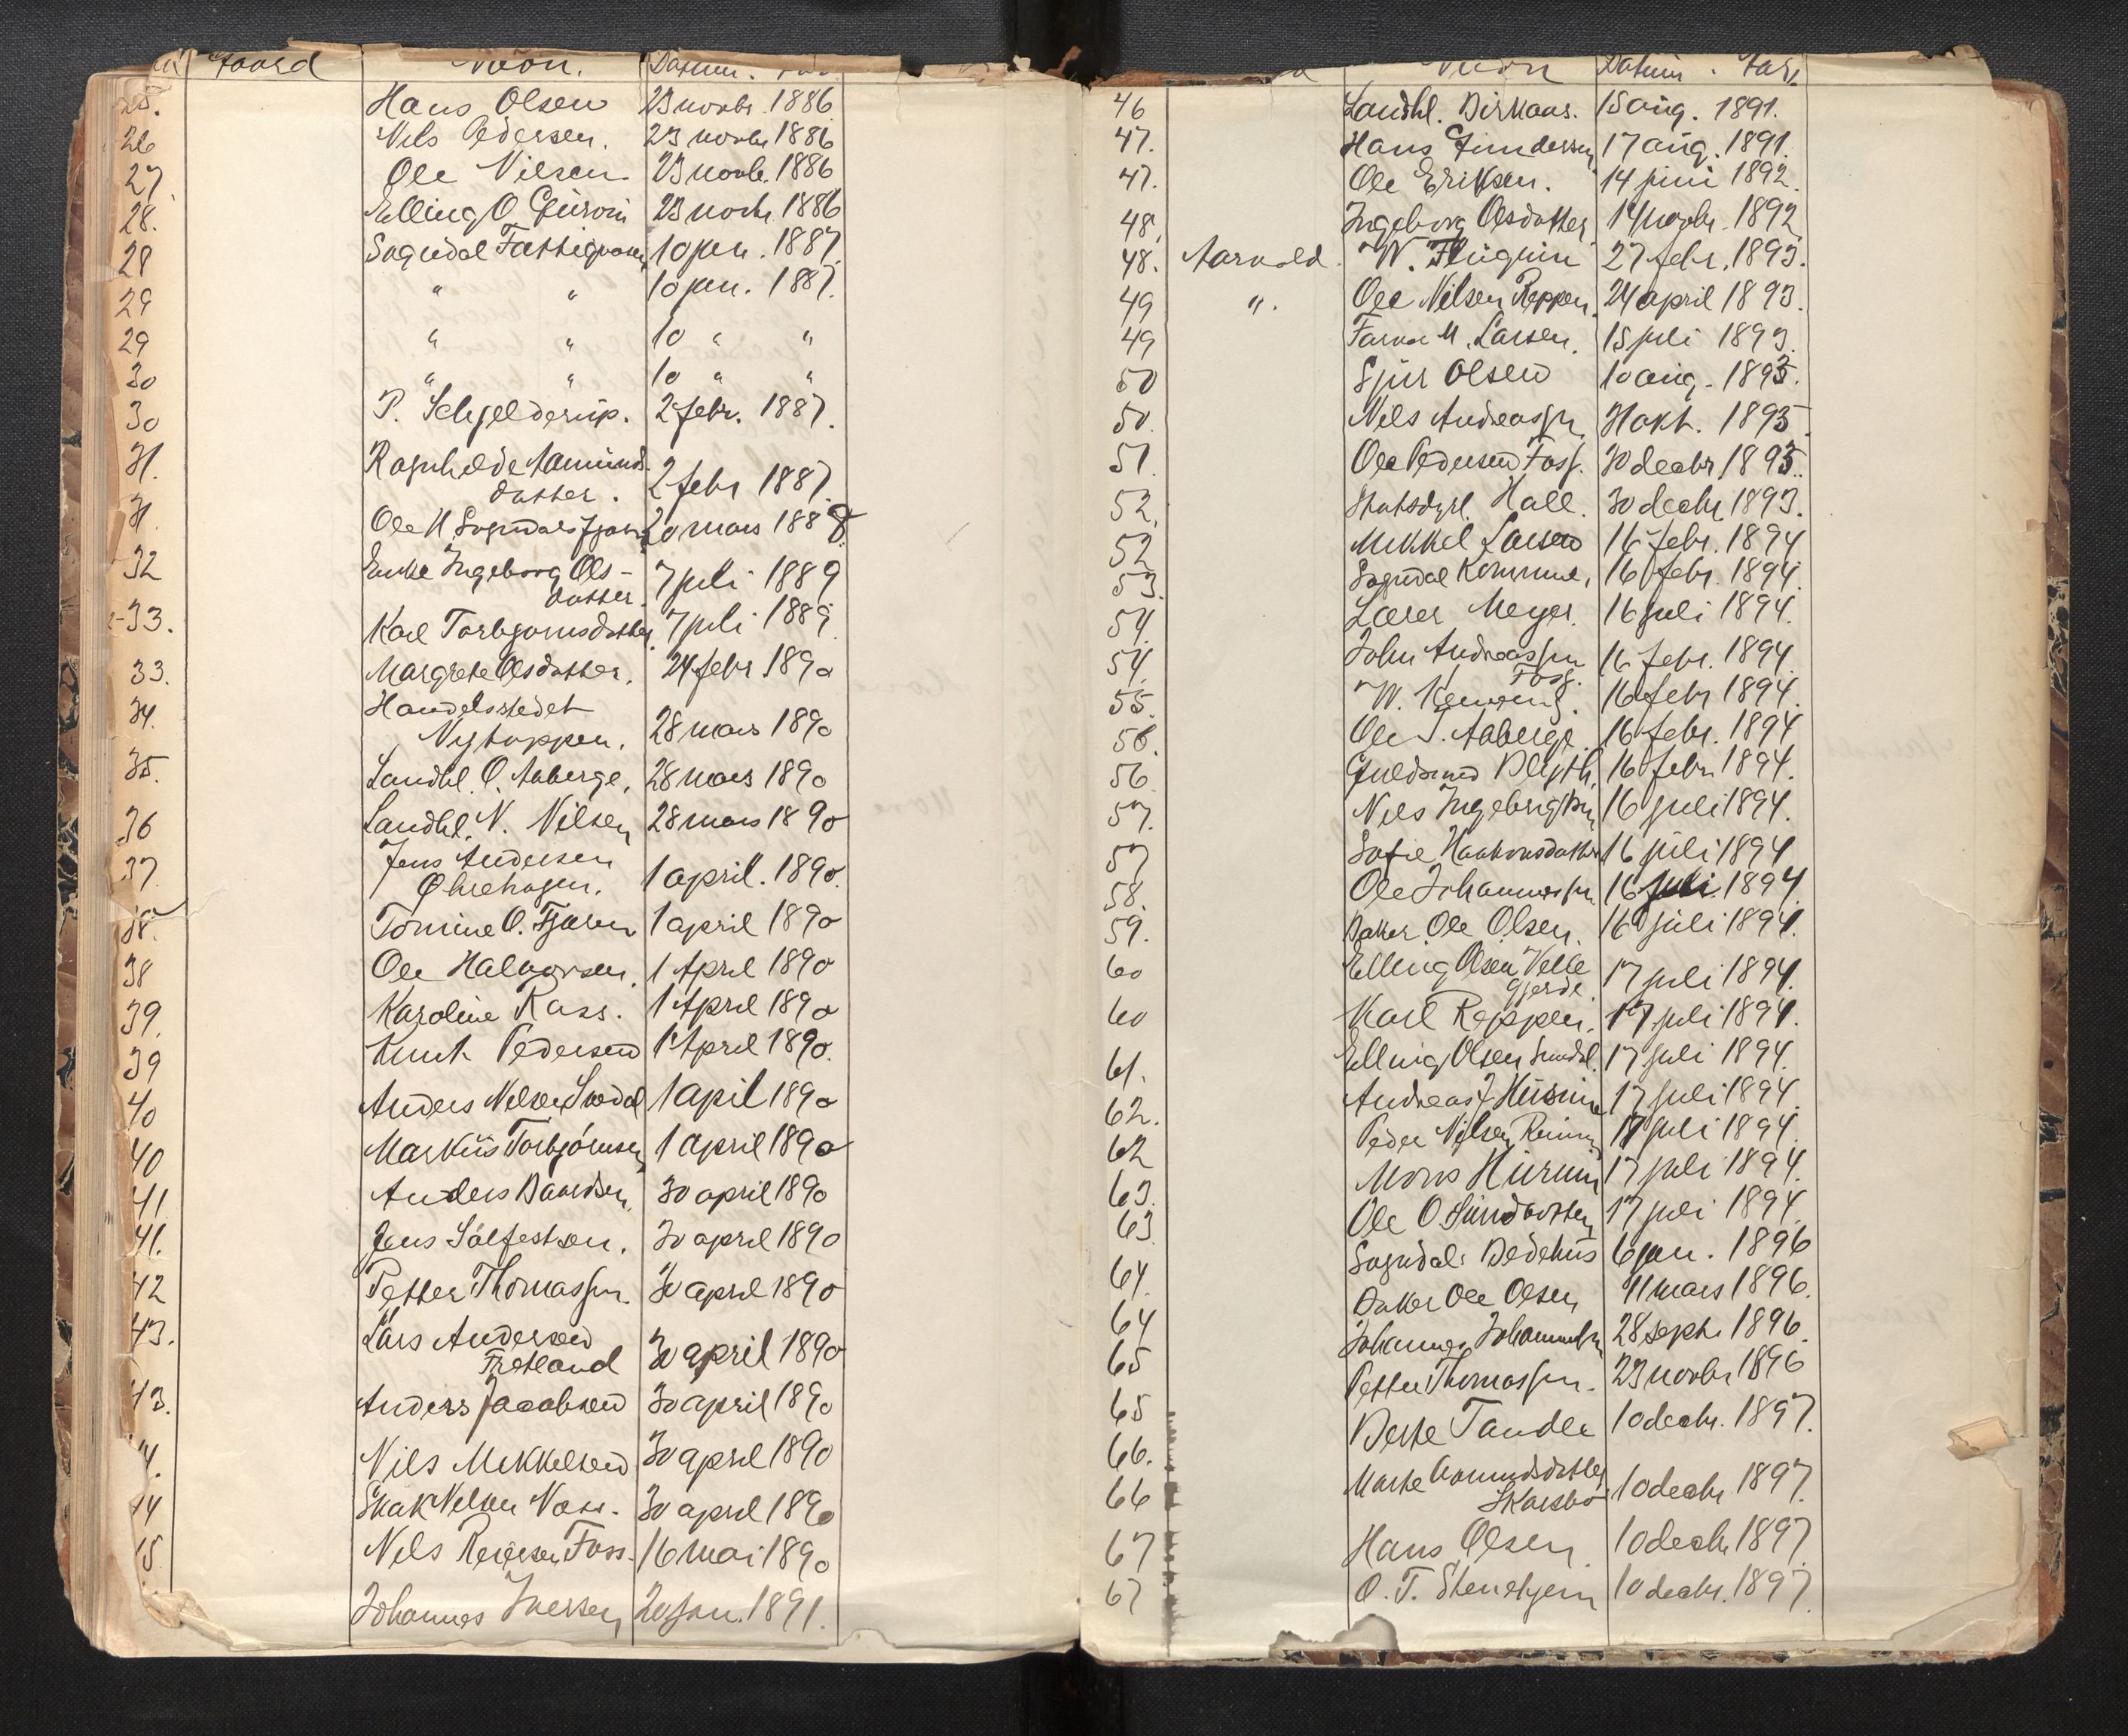 Gaard Navn. Datum.
25. Hans Olsen 23 novbr. 1886
26 Nils Pedersen. 23 novbr 1886
27. Ole Nilsen. 23 novbr. 1886
28. Elling O 23 novbr. 1886
28 Sogndal Fattigvæsen 10 jan. 1887.
29 " " 10 jan. 1887.
29 " " 10 " "
30 " " 10 " "
30 P. Schjelderup. 2 febr. 1887.
31. Ragnhilde Aamunds-
datter. 2 febr 1887.
31. Ole H. Sogndalsfjæren 20 mars 1888.
32 Enke Ingeborg Ols-
datter. 7 juli 1889
33. Kari Torbjørnsdatter 7 juli 1889.
33. Margrete Olsdatter. 24 febr 1890
34. Handelsstedet
Nytappen. 28 mars 1890
35. Landhl. O. Aaberge. 28 mars 1890
36 Landhl. N. Nilsen 28 mars 1890
37. Jens Andersen
1 april. 1890.
38. Tomine O. Fjæren 1 april 1890
38 Ole Halvorsen. 1 April 1890
39. Karoline Rass. 1 April 1890
39 Knut Pedersen 1 April 1890.
40 Anders Nilsen 1 april 1890
40 Markus Torbjørnsen 1 april 1890
41 Anders Baardsen. 30 april 1890
41. Jens Sølfestsen. 30 april 1890
42 Petter Thomassen. 30 april 1890
43. Lars Andersen
Fretland 30 april 1890
43. Anders Jacobsen 30 april 1890
Nils Mikkelsen 30 april 1890
Isak Nilsen Noss. 30 april 1890
Nils Foss. 16 mai 1890
Johannes Iversen 20 jan. 1891.
Navn Datum.
46 Landhl. Birkaas. 15 aug. 1891.
47. Hans Gundersen 17 aug. 1891.
47. Ole Eriksen. 14 juni 1892.
48. Ingeborg Olsdatter 14 novbr. 1892
48. W. 27 febr. 1893.
49 ". Ole Nilsen Reppen. 24 april 1893.
49 M. Larsen. 15 juli 1893.
50 Sjur Olsen 10 aug. 1893.
50. Nils Andreassen 3 okt. 1893.
51. Ole Pedersen Foss. 30 decbr 1893.
52. Hall. 30 decbr 1893.
52 Mikkel Larsen 16 febr. 1894
53. Sogndal Kommune. 16 febr. 1894.
54. Lærer Meyer. 16 juli 1894.
54. John Andreassen
Foss. 16 febr. 1894.
55. W. 16 febr 1894.
56. Ole T. Aaberge. 16 febr. 1894
56. Guldsmed Blyth. 16 febr. 1894.
57. Nils Ingebrigtsen 16 juli 1894.
57 Sofie Haakonsdatter 16 juli 1894
58. Ole Johannessen 16 juli 1894.
59. Baker Ole Olsen. 16 juli 1894.
60 Elling Olsen Velle
gjerde. 17 juli 1894.
60 Karl Reppen. 17 juli 1894.
61. Elling Olsen Sundal. 17 juli 1894.
62. Andreas J. Husum 17 juli 1894
62 Peder Nilsen 17 juli 1894.
63. Mons Husum 17 juli 1894.
63 Ole O. 17 juli 1894.
64. Sogndals Bedehus 6 jan. 1896
64 Baker Ole Olsen 11 mars 1896.
65 Johannes Johannessen 28 septr. 1896.
65 Petter Thomassen. 23 novbr 1896
66. Berte Tandle 10 decbr. 1897.
66 Marte Aamundsdatter
10 decbr 1897.
67 Hans Olsen. 10 decbr 1897.
67 O. T. Stenehjem 10 decbr. 1897.